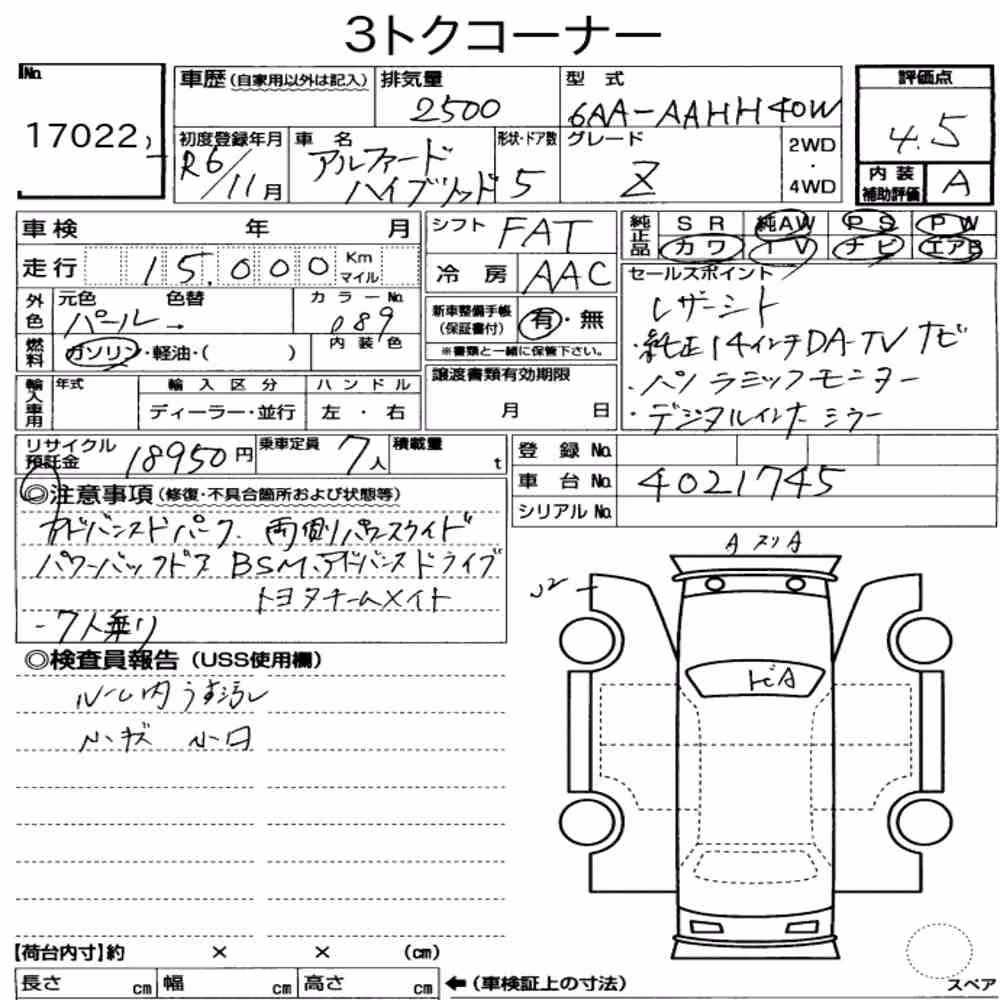 3トクコーナー
No.
17022
車歴(自家用以外は記入)
排気量
2500
型 式
6AA-AAHH40W
評価点
4.5
初度登録年月
R6/11月
車 名
アルファード
ハイブリッド
形状・ドア数
5
グレード
Z
2WD
・
4WD
内 装
補助評価
A
車検 年 月
シフト
FAT
純正品
SR 純AW PS PW
カワ TV ナビ エアB
走行 15,000 Km
マイル
冷 房
AAC
セールスポイント
レザーシート
・純正14インチDA-TVナビ
・パノラミックモニター
・デジタルインナーミラー
外色
元色 色替
パール→
カラーNo.
089
新車整備手帳
(保証書付)
有・無
※書類と一緒に保管下さい。
燃料
ガソリン・軽油・( )
内装色
輸入車用
年式
輸入区分
ハンドル
ディーラー・並行
左 ・ 右
譲渡書類有効期限
月 日
リサイクル
預託金
18950円
乗車定員
7人
積載量
t
登 録 No.
車 台 No.
4021745
シリアル No.
◎注意事項(修復・不具合箇所および状態等)
アドバンスドパーク、両側パワースライド
パワーバックドア BSM、アドバンスドドライブ
トヨタチームメイト
-7人乗り
A スリA
◎検査員報告(USS使用欄)
ルーム内うす汚れ
小キズ 小凹
トビA
【荷台内寸】約 × × (cm)
長さ cm 幅 cm 高さ cm
←(車検証上の寸法)
スペア